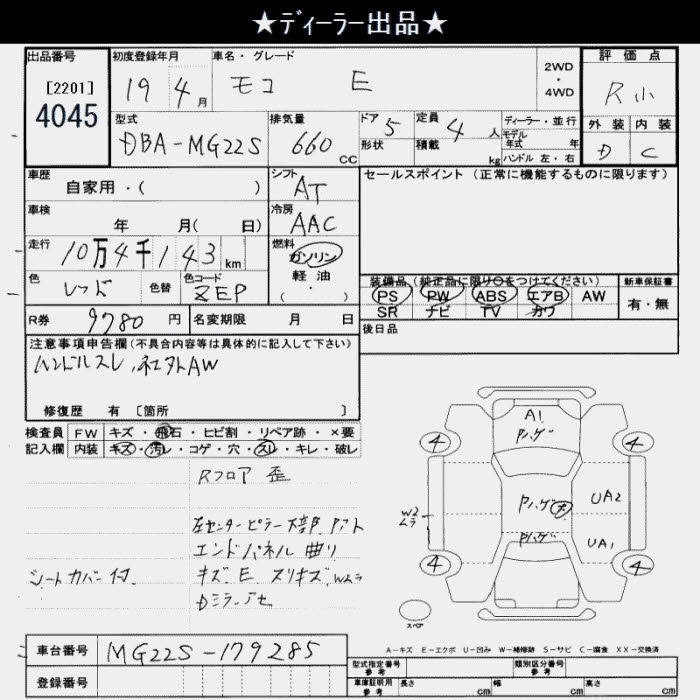 ★ディーラー出品★
出品番号 初度登録年月 車名・グレード 評価点
[2201] 19 4月 モコ E 2WD・4WD R小
4045
型式 排気量 ドア 定員 ディーラー・並行 外装 内装
DBA-MG22S 660 CC 5 4 人 モデル 年式 年 D C
形状 積載 kg ハンドル 左・右
車歴 シフト セールスポイント(正常に機能するものに限ります)
自家用・( ) AT
車検 冷房
年 月( 日) AAC
走行 10万4千143 km 燃料 ガソリン
軽油
( ・ )
色 レッド 色替 色コード ZEP
装備品(純正品に限り○をつけてください) 新車保証書
PS PW ABS エアB AW 有・無
SR ナビ TV カワ
R券 9780 円 名変期限 月 日 後日品
注意事項申告欄(不具合内容等は具体的に記入して下さい)
ハンドルスレ,
修復歴 有 [箇所 ]
検査員 FW キズ・飛石・ヒビ割・リペア跡・×要
記入欄 内装 キズ・汚レ・コゲ・穴・スレ・キレ・破レ
Rフロア 歪
左センターピラー
エンドパネル 曲り
シートカバー付 キズ、E スリキズ、Wムラ
Dミラーアセ
A1
Pハゲ
4 4
Pハゲ UA2
W2
ムラ
Pハゲ UA1
4 4
スペア
A-キズ E-エクボ U-凹み W-補修跡 S-サビ C-腐食 XX-交換済
車台番号 MG22S-179285 型式指定番号 参考 類別区分番号 参考
登録番号 車庫証明用 参考 長さ cm 幅 cm 高さ cm